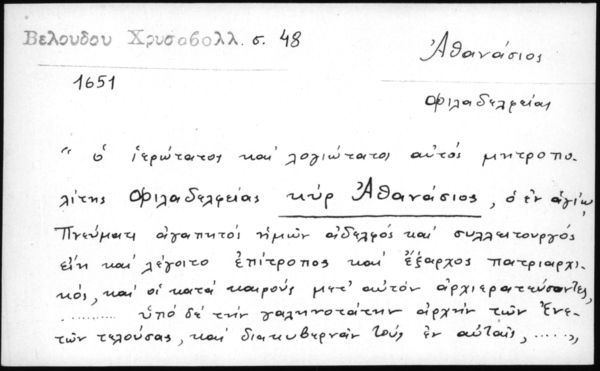 Βελουδου Χρυσοβολλ. σ. 48
Ἀθανάσιος
1651
Φιλαδελφείας
" ὁ ἱερώτατος καὶ λογιώτατος αὐτός μητροπο-
λίτης Φιλαδελφείας κύρ Ἀθανάσιος, ὁ ἐν ἁγίῳ
Πνεύματι ἀγαπητός ἡμῶν ἀδελφός καὶ συλλειτουργός
εἴη καὶ λέγοιτο ἐπίτροπος καὶ ἔξαρχος πατριαρχι-
κός, καὶ οἱ κατά καιρούς μετ' αὐτόν ἀρχιερατεύσαντες,
.......... ὑπό δέ τήν γαληνοτάτην ἀρχήν τῶν Ἐνε-
τῶν τελούσας, καὶ διακυβερνᾶν τούς ἐν αὐταῖς, .....,